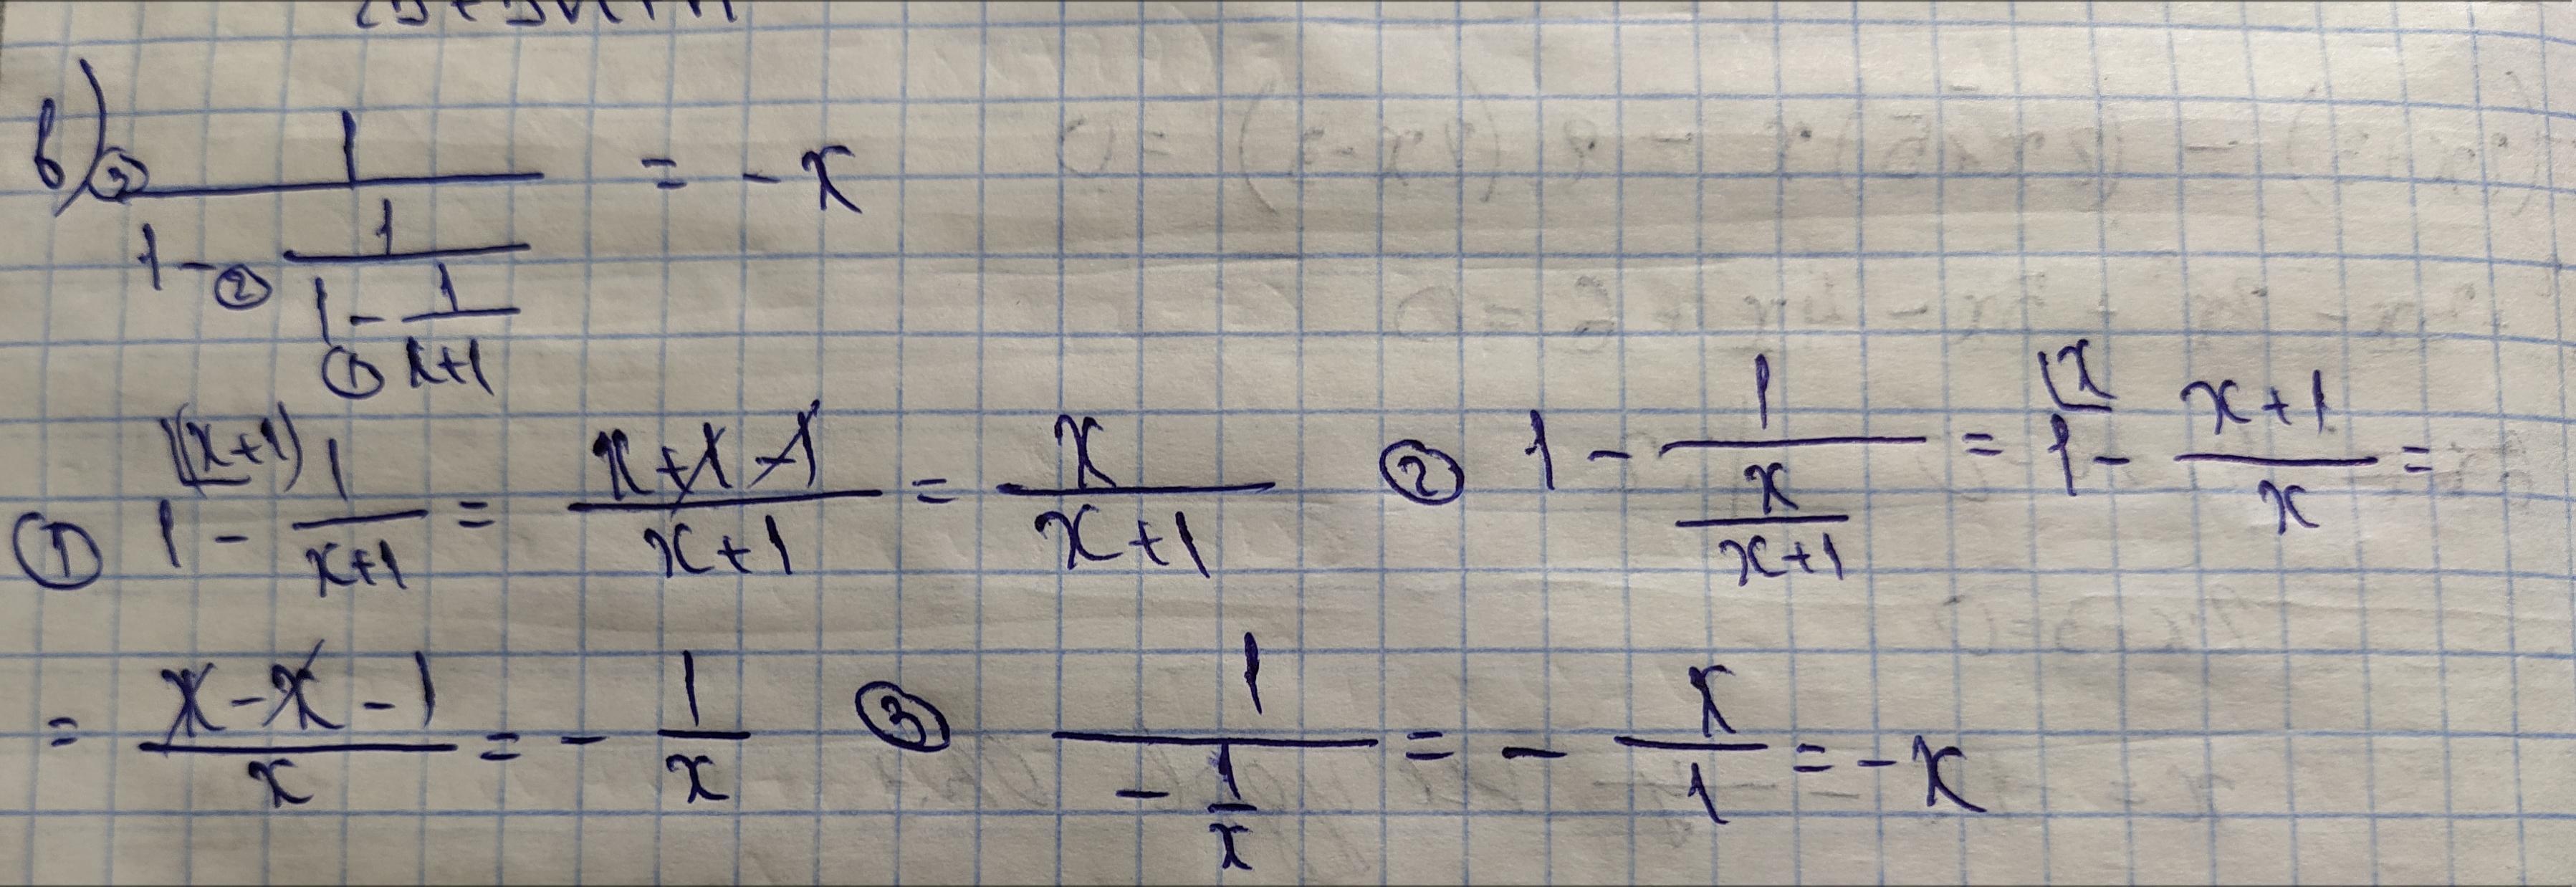 в) ③ 1/(1 - ② 1/(1 - ① 1/(x+1))) = -x
① 1 - 1/(x+1) = (x+1-1)/(x+1) = x/(x+1) ② 1 - 1/(x/(x+1)) = 1 - (x+1)/x =
= (x-x-1)/x = - 1/x ③ 1/(-1/x) = - x/1 = -x